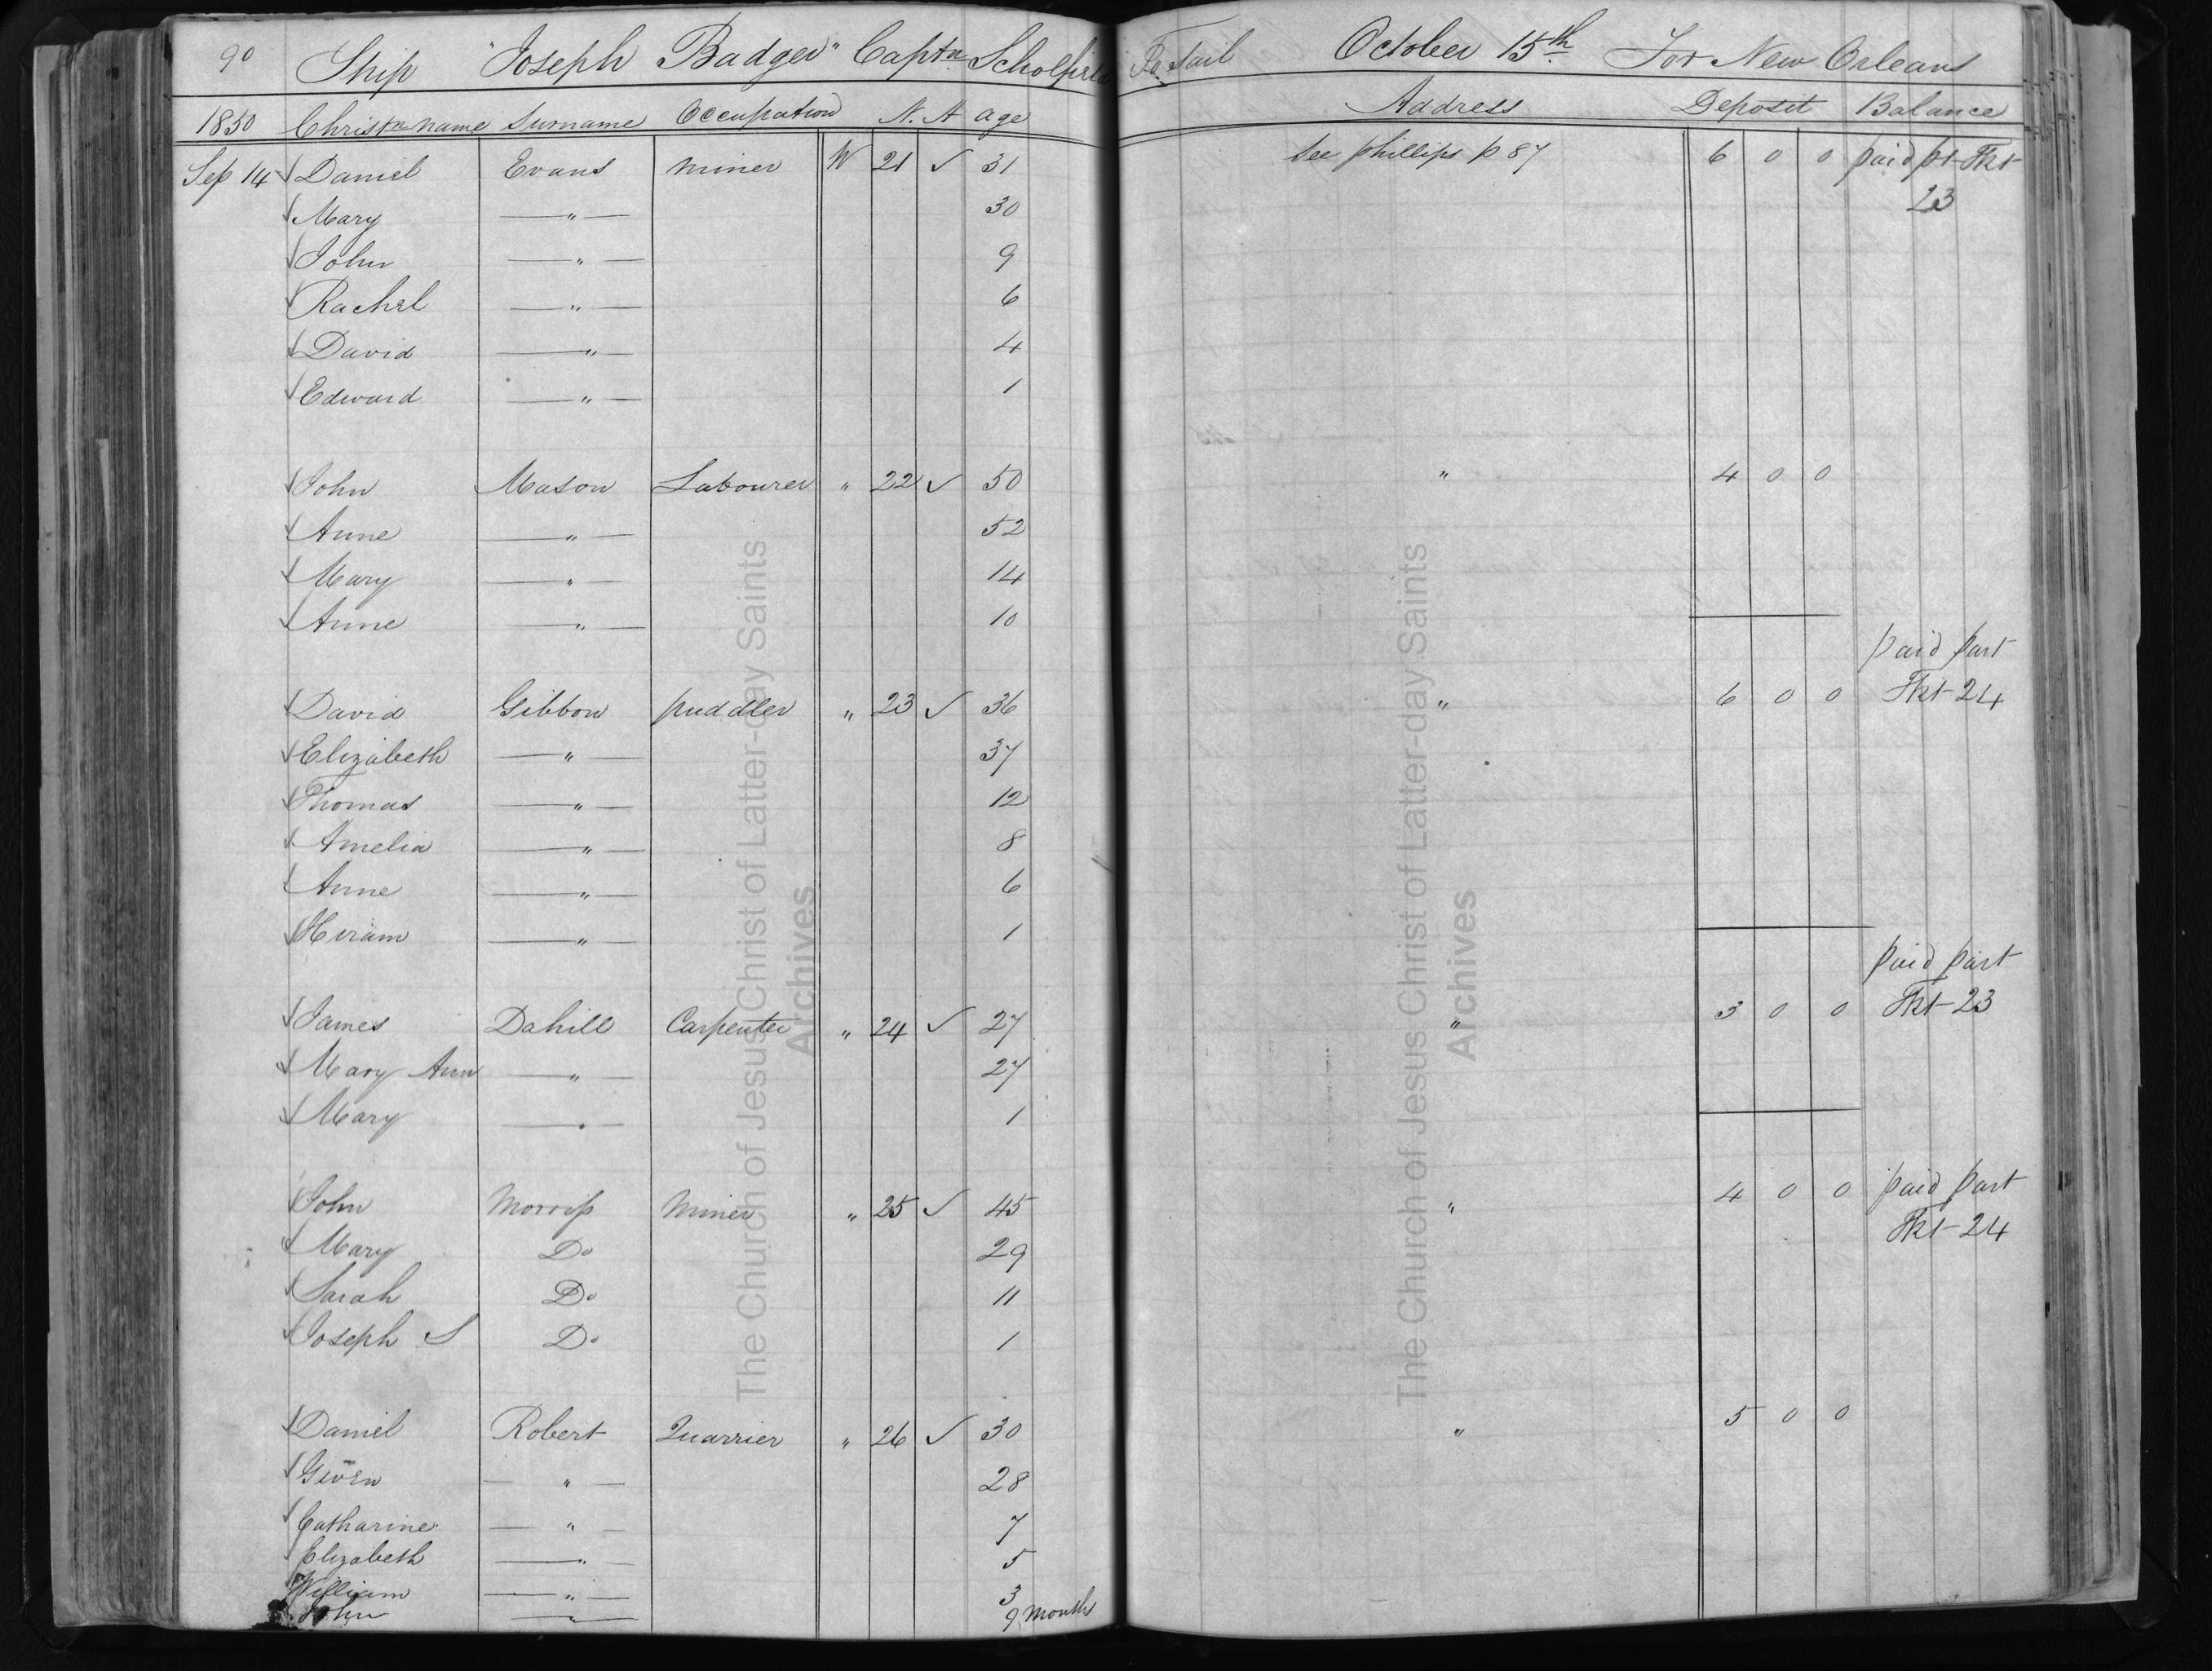 90 Ship "Joseph Badger" Captn Scholfield To Sail October 15th For New Orleans
1850 Christn name Surname Occupation N. A age Address Deposit Balance
Sep 14 Daniel Evans miner W 21 ✓ 31 See phillips p 87 6 0 0 paid pt Tkt
Mary " 30 23
John " 9
Rachel " 6
David " 4
Edward " 1
John Mason Labourer " 22 ✓ 50 " 4 0 0
Anne " 52
Mary " 14
Anne " 10
paid part
David Gibbon puddler " 23 ✓ 36 " 6 0 0 Tkt 24
Elizabeth " 37
Thomas " 12
Amelia " 8
Anne " 6
Hiram " 1
paid part
James Dahill Carpenter " 24 ✓ 27 " 3 0 0 Tkt 23
Mary Ann " 27
Mary " 1
John Morriss Miner " 25 ✓ 45 " 4 0 0 paid part
Mary Do 29 Tkt 24
Sarah Do 11
Joseph S Do 1
Daniel Robert Quarrier " 26 ✓ 30 " 5 0 0
Gwen " 28
Catharine " 7
Elizabeth " 5
William " 3
John " 9 months
The Church of Jesus Christ of Latter-day Saints
Archives
The Church of Jesus Christ of Latter-day Saints
Archives